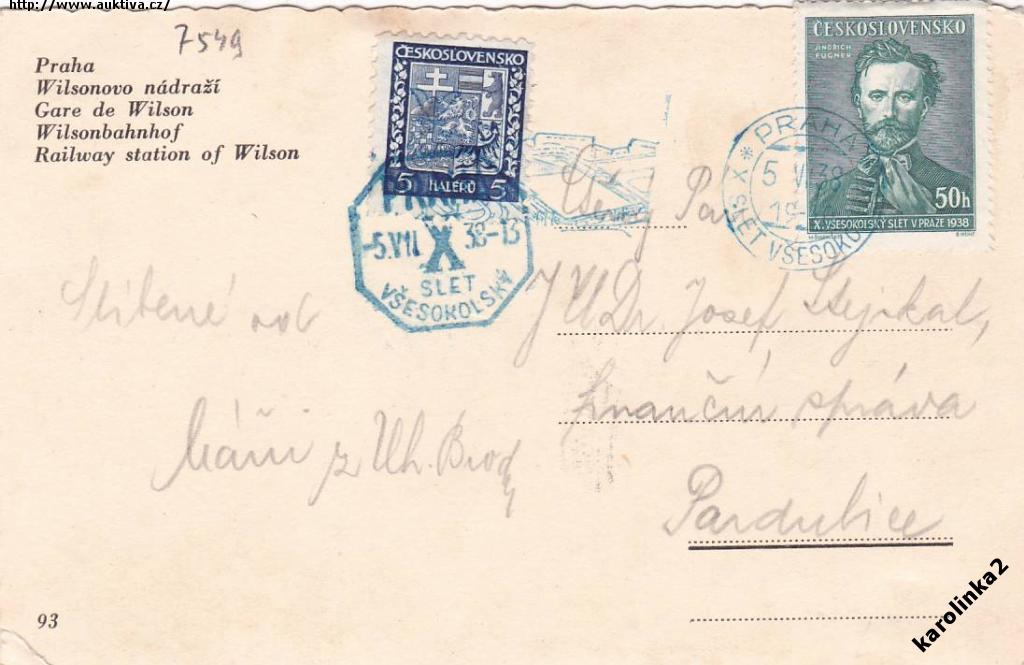 http://www.auktiva.cz/
7549
Praha
Wilsonovo nádraží
Gare de Wilson
Wilsonbahnhof
Railway station of Wilson
ČESKOSLOVENSKO
5 HALÉŘŮ 5
ČESKOSLOVENSKO
JINDŘICH
FÜGNER
50h
X. VŠESOKOLSKÝ SLET V PRAZE 1938
PRAHA
5 VII 38
X SLET VŠESOKO
-5.VII 38-13
X
SLET
VŠESOKOLSKÝ
JUDr. Josef
finanční správa
Pardubice
z Uh. Brod
93
karolinka2